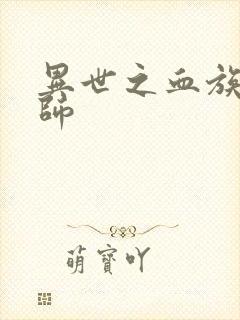 異世之血族
師
萌寶吖